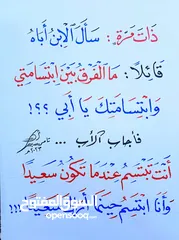 ذَاتَ مَرَّةٍ : سَأَلَ الِابْنُ أَبَاهُ
قَائِلًا : مَا الْفَرْقُ بَيْنَ ابْتِسَامَتِي
وَابْتِسَامَتِكَ يَا أَبِي ؟؟!
فأجاب الأب ...
أَنْتَ تَبْتَسِمُ عِنْدَمَا تَكُونُ سَعِيدًا
وَأَنَا ابْتَسِمُ حِينَمَا
السوق المفتوح